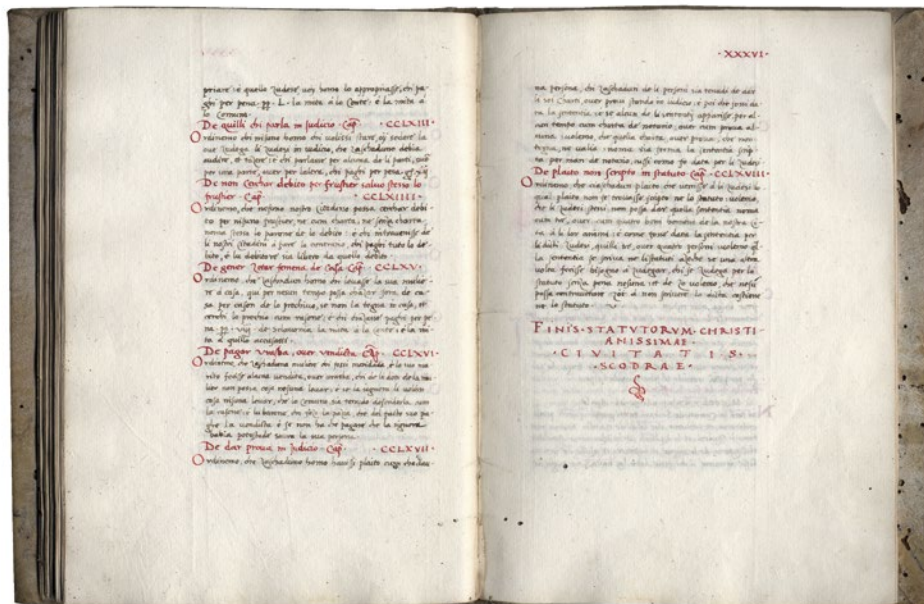 priare: e quello zudese voy homo lo apropriasse, chi pa
ghi per pena · pp · L · la mita a la Corte: e la mita a
lo Comun.
De quelli chi parla in Judicio Cap̃ · CCLXIII ·
Ordinemo chi nisuno homo chi volissi stare,
audire, et tazere: e chi parlasse per alcuna de li parti,
per una parte, over per laltra, chi paghi per pena
De non cerchar debito per frusher salvo stersi lo
frusher Cap̃ · CCLXIIII ·
Ordinemo, che nesuno nostro Citadino possa cerchar debi
to per nisuno frusher, ne cum charta, ne senza charta
noma stersi lo patrone de lo debito: e chi intervenisse de
li nostri citadini a fare lo contrario, chi paghi tuto lo de
bito, e lo debitore sia libero da quello debito.
De gener zetar femena de casa Cap̃ · CCLXV ·
Ordinemo, che zaschadun homo chi levasse la sua mulie
re a casa, qui per nesun tempo possa chazar fora de ca
sa per cason de la prochiva, se non la tegna in casa, et
cerchi la prochiva cum rasone; e chi chazasse paghi per pe
na · pp · de la mita a la Corte: e la mi
ta a quello accusassi.
De pagar vrasba, over vendicta Cap̃ · CCLXVI ·
Ordinemo, che zaschaduna muliere chi fussi maridada, e lo suo ma
rito facesse alcuna vendicta, over vrasba, chi de la dote de la mu
lier non possa cosa nesuna levar; e se la signoria li volessi
cosa nisuna levar, che lo Comun sia tenudo defenderla cum
la rasone: e lo baron, chi fece la pacia, che del fatto suo pa
ghe la vendicta: e se non ha che pagare che la signoria
habia potestade sovra la sua persona.
De dar prova in Judicio Cap̃ · CCLXVII ·
Ordinemo, che zaschaduno homo havessi plaito cum che
· XXXVI ·
na persona, chi zaschadun de le persone sia tenudo de dare
e soi Charti, over provi stando in iudicio, e poi che serà da
ta la sententia, se se alcuna de li contrarii apparisse per al
cun tempo cum charta de notario, over cum prova al
chuna: volemo, che quella charta, over prova, che mon
strasse, no vaglia: noma sia ferma la sententia scrip
ta per man de notario, cussì come fo data per li zudesi.
De plaito non scripto in statuto Cap̃ · CCLXVIII ·
Ordinemo, che ciaschadun plaito, che venisse a li zudesi lo
qual plaito non se trovasse scripto ne lo statuto: volemo,
che li zudesi stersi, non possa dar quella sententia noma
cum tre, over cum quatro boni homeni de la nostra ci
ta a li lor animi: e come serà data la sententia per
li diti zudesi, quelli tre, over quatro personi volemo
la sententia se scriva ne li statuti azoche ne una altra
volta facesse bisogno a zudegar, chi se zudega per lo
statuto senza pena nesuna: et de zo volemo, che nesun
possa contrariare zoè a non scrivere la dicta costione
ne lo statuto.
FINIS · STATUTORVM · CHRISTI
ANISSIMAE ·
· C I V I T A T I S ·
· SCODRAE ·